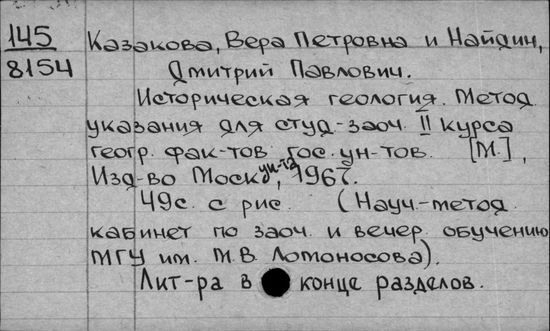 145
8154
Казакова, Вера Петровна и Найдин,
Дмитрий Павлович.
Историческая геология. Метод.
указания для студ-заоч. II курса
геогр. фак-тов гос. ун-тов. [М.],
Изд-во Моск ун-та, 1967.
49с. с рис. (Науч.-метод.
кабинет по заоч. и вечер. обучению
МГУ им. М.В. Ломоносова).
Лит-ра в конце разделов.